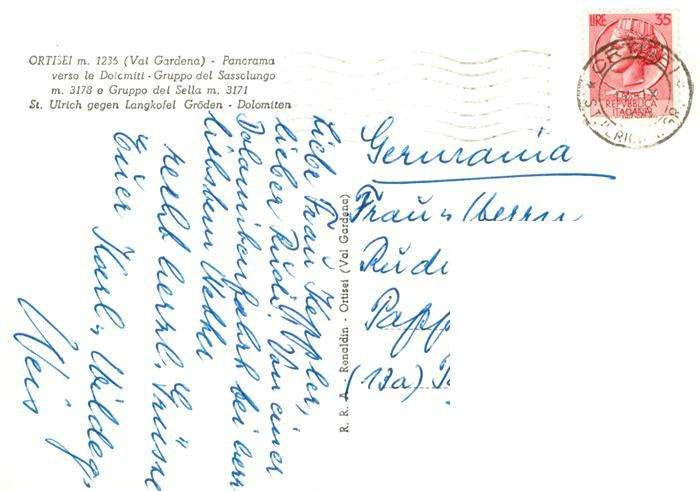 ORTISEI m. 1236 (Val Gardena) - Panorama
verso le Dolomiti - Gruppo del Sassolungo
m. 3178 e Gruppo del Sella m. 3171
St. Ulrich gegen Langkofel Gröden - Dolomiten
LIRE 35
REPVBBLICA
ITALIANA
ORTISEI
Liebe Frau Keppler,
lieber Rudi! Von einer
Dolomitenfahrt bei
liebstem Wetter
recht herzl. Grüsse
Euer Karl, Hildeg,
R. R. A. Renaldin - Ortisei (Val Gardena)
Germania
Frau u Herrn
Rudi
Papp
(13a)